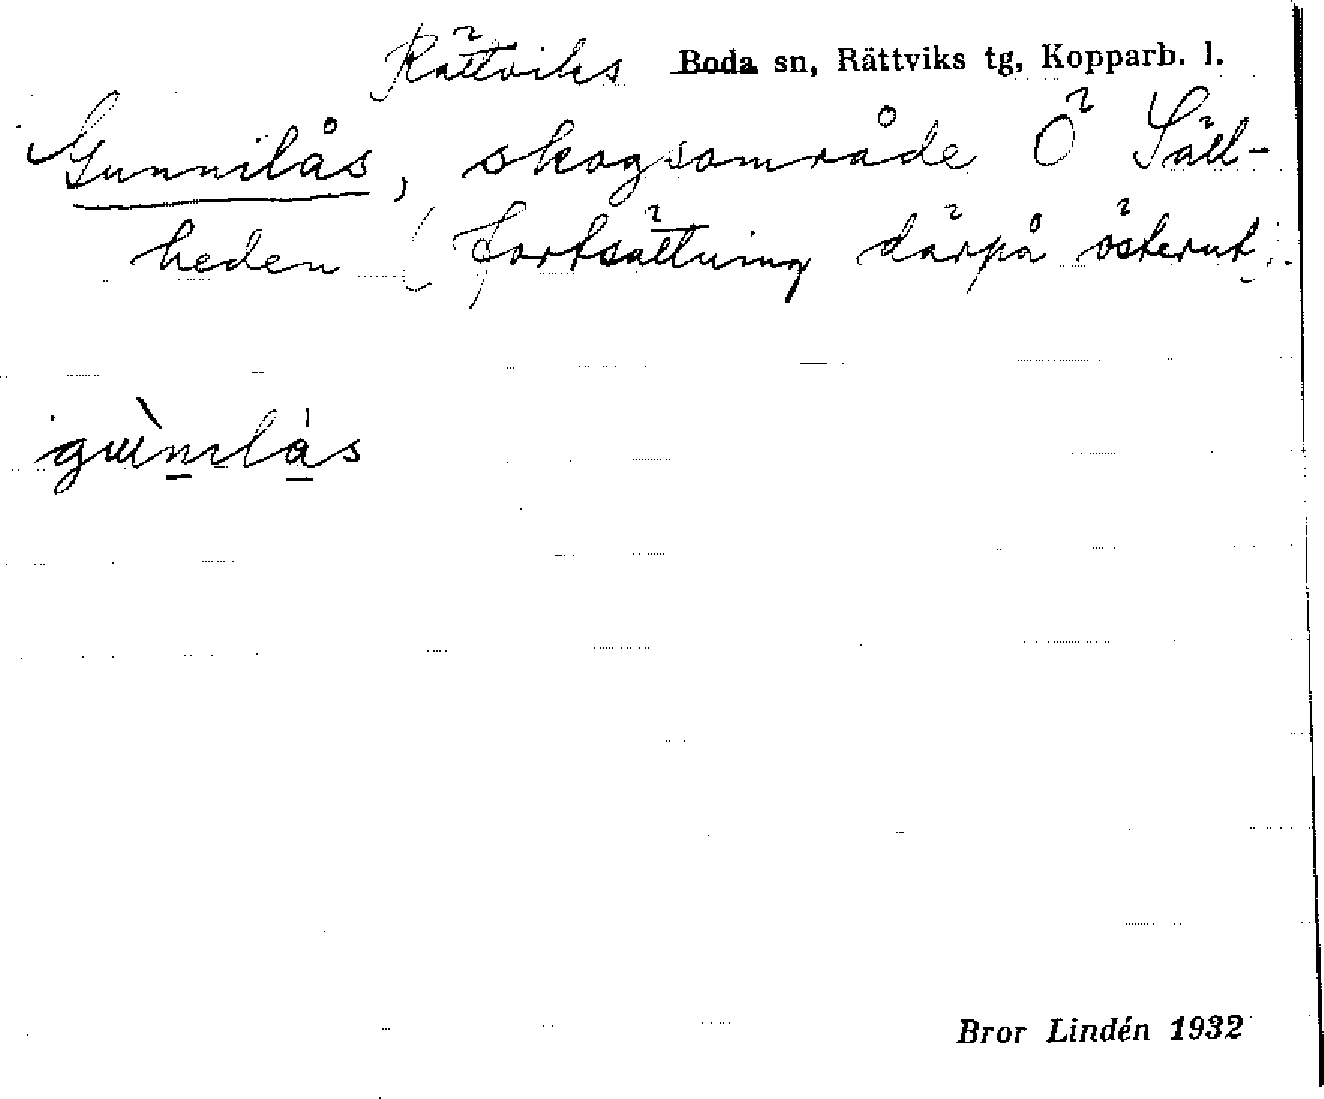 Rättviks Boda sn, Rättviks tg, Kopparb. l.
Gunnilås, skogsområde Ö Säll-
heden (fortsättning därpå österut).
gùnilås
Bror Lindén 1932